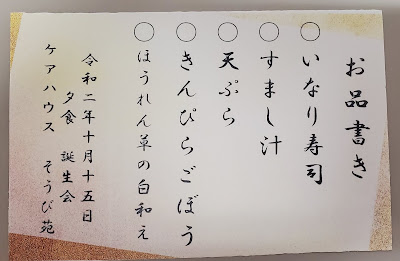 お品書き
○いなり寿司
○すまし汁
○天ぷら
○きんぴらごぼう
○ほうれん草の白和え
令和二年十月十五日
夕食 誕生会
ケアハウス そうび苑